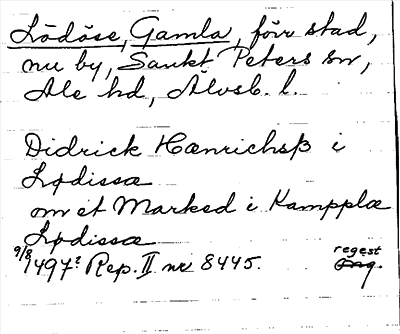 Lödöse, Gamla, förr stad,
nu by, Sankt Peters sn,
Ale hd, Älvsb. l.
Didrick Hænrichsß i
Lødissæ
om et Marked i Kampplæ
Lødissæ
9/8 1497? Rep. II nr 8445. regest
Org.